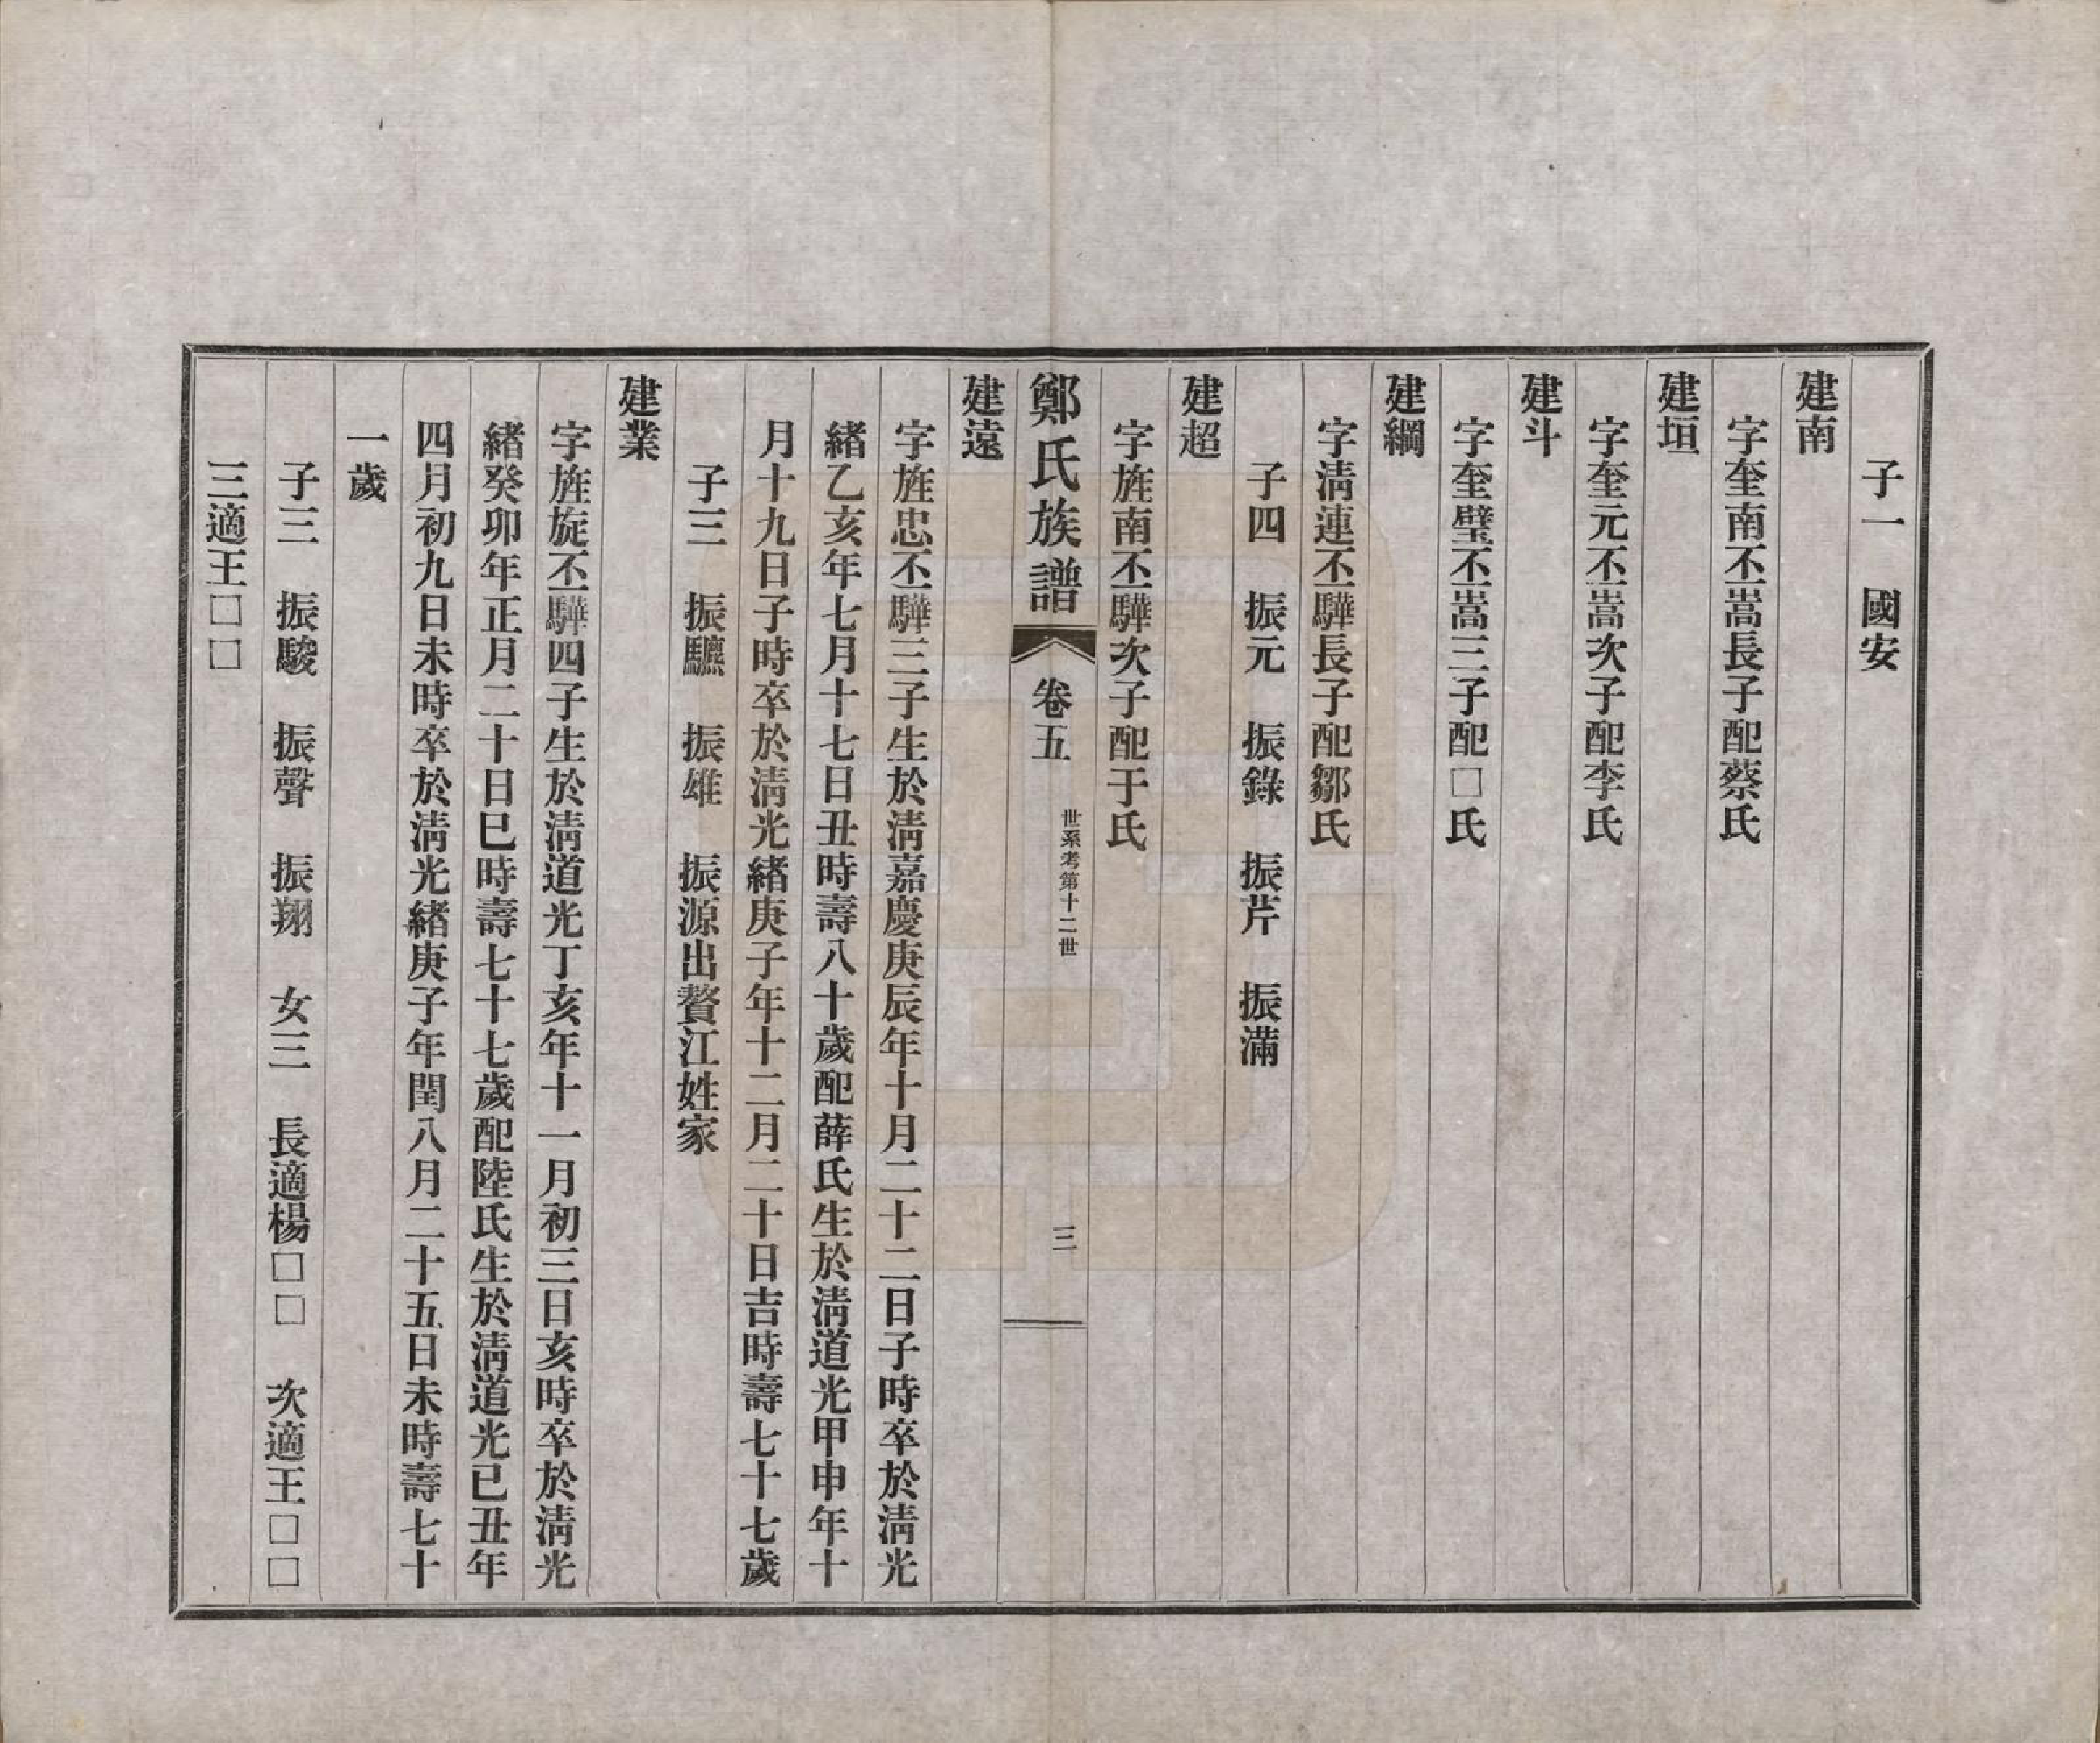 子一　國安
建南
字奎南丕嵩長子配蔡氏
建垣
字奎元丕嵩次子配李氏
建斗
字奎璧丕嵩三子配□氏
建綱
字清連丕驊長子配鄒氏
子四　振元　振錄　振芹　振滿
建超
字旌南丕驊次子配于氏
鄭氏族譜　卷五　世系考第十二世　三
建遠
字旌忠丕驊三子生於清嘉慶庚辰年十月二十二日子時卒於清光
緒乙亥年七月十七日丑時壽八十歲配薛氏生於清道光甲申年十
月十九日子時卒於清光緒庚子年十二月二十日吉時壽七十七歲
子三　振驪　振雄　振源出贅江姓家
建業
字旌旋丕驊四子生於清道光丁亥年十一月初三日亥時卒於清光
緒癸卯年正月二十日巳時壽七十七歲配陸氏生於清道光已丑年
四月初九日未時卒於清光緒庚子年閏八月二十五日未時壽七十
一歲
子三　振駿　振聲　振翔　女三　長適楊□□　次適王□□
三適王□□